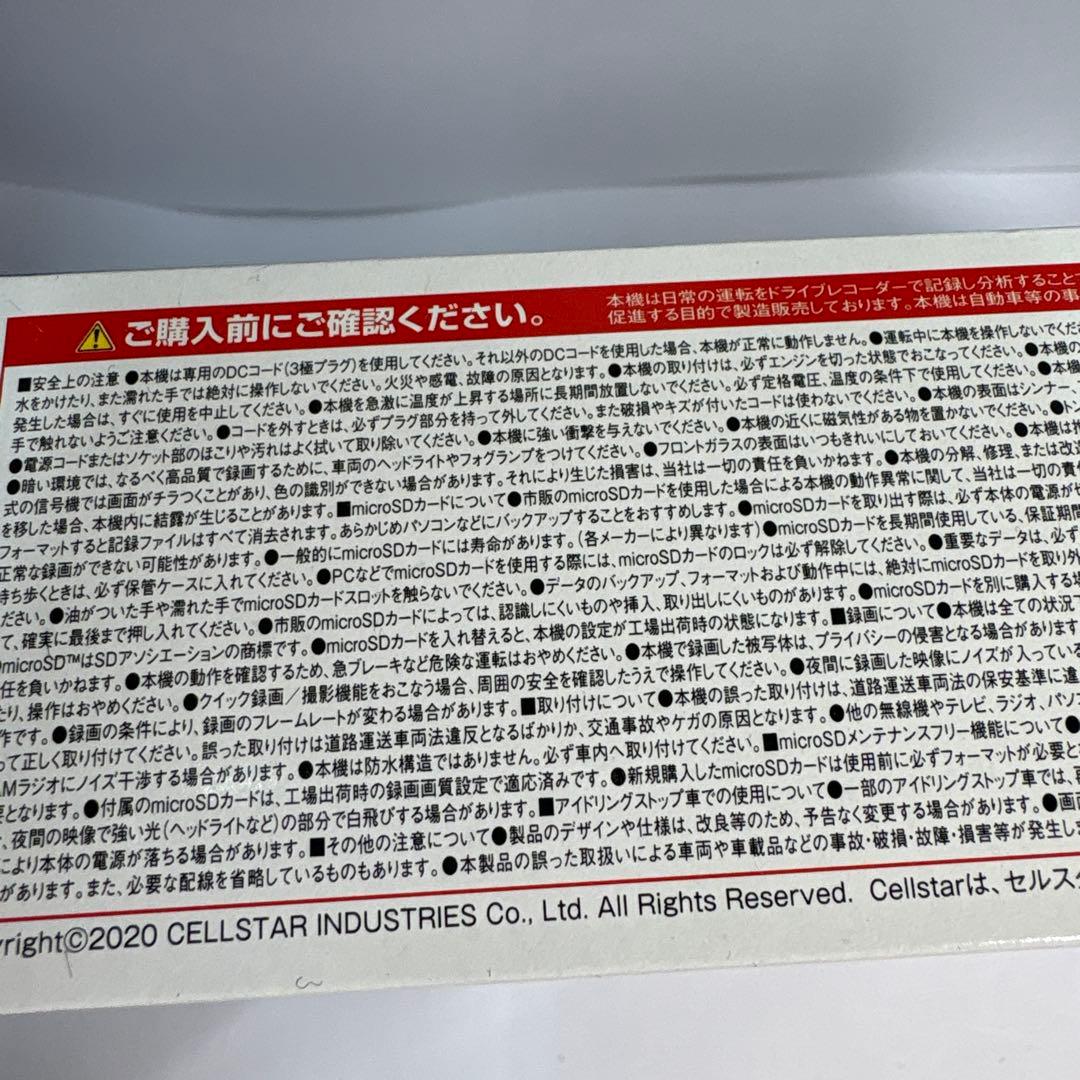 ご購入前にご確認ください。
本機は日常の運転をドライブレコーダーで記録し分析することで
促進する目的で製造販売しております。本機は自動車等の事
■安全上の注意 ●本機は専用のDCコード(3極プラグ)を使用してください。それ以外のDCコードを使用した場合、本機が正常に動作しません。●運転中に本機を操作しないでくだ
水をかけたり、また濡れた手では絶対に操作しないでください。火災や感電、故障の原因となります。●本機の取り付けは、必ずエンジンを切った状態でおこなってください。●本機の
発生した場合は、すぐに使用を中止してください。●本機を急激に温度が上昇する場所に長期間放置しないでください。必ず定格電圧、温度の条件下で使用してください。●本機
手で触れないようご注意ください。●コードを外すときは、必ずプラグ部分を持って外してください。また破損やキズが付いたコードは使わないでください。●本機の表面はシンナー、
●電源コードまたはソケット部のほこりや汚れはよく拭いて取り除いてください。●本機に強い衝撃を与えないでください。●本機の近くに磁気性がある物を置かないでください。●トン
●暗い環境では、なるべく高品質で録画するために、車両のヘッドライトやフォグランプをつけてください。●フロントガラスの表面はいつもきれいにしておいてください。●本機は推
式の信号機では画面がチラつくことがあり、色の識別ができない場合があります。それにより生じた損害は、当社は一切の責任を負いかねます。●本機の分解、修理、または改造
を移した場合、本機内に結露が生じることがあります。■microSDカードについて●市販のmicroSDカードを使用した場合による本機の動作異常に関して、当社は一切の責
フォーマットすると記録ファイルはすべて消去されます。あらかじめパソコンなどにバックアップすることをおすすめします。●microSDカードを取り出す際は、必ず本体の電源が
正常な録画ができない可能性があります。●一般的にmicroSDカードには寿命があります。(各メーカーにより異なります)●microSDカードを長期間使用している、保証期間
持ち歩くときは、必ず保管ケースに入れてください。●PCなどでmicroSDカードを使用する際には、microSDカードのロックは必ず解除してください。●重要なデータは、必ず
ださい。●油がついた手や濡れた手でmicroSDカードスロットを触らないでください。●データのバックアップ、フォーマットおよび動作中には、絶対にmicroSDカードを取り外
て、確実に最後まで押し入れてください。●市販のmicroSDカードによっては、認識しにくいものや挿入、取り出しにくいものがあります。●microSDカードを別に購入する場
microSD™はSDアソシエーションの商標です。●microSDカードを入れ替えると、本機の設定が工場出荷時の状態になります。■録画について●本機は全ての状況下
任を負いかねます。●本機の動作を確認するため、急ブレーキなど危険な運転はおやめください。●本機で録画した被写体は、プライバシーの侵害となる場合があります
たり、操作はおやめください。●クイック録画／撮影機能をおこなう場合、周囲の安全を確認したうえで操作してください。●夜間に録画した映像にノイズが入っている
作です。●録画の条件により、録画のフレームレートが変わる場合があります。■取り付けについて●本機の誤った取り付けは、道路運送車両法の保安基準に違
って正しく取り付けてください。誤った取り付けは道路運送車両法違反となるばかりか、交通事故やケガの原因となります。●他の無線機やテレビ、ラジオ、パソ
AMラジオにノイズ干渉する場合があります。●本機は防水構造ではありません。必ず車内へ取り付けてください。■microSDメンテナンスフリー機能について●
要となります。●付属のmicroSDカードは、工場出荷時の録画画質設定で適応済みです。●新規購入したmicroSDカードは使用前に必ずフォーマットが必要と
、夜間の映像で強い光(ヘッドライトなど)の部分で白飛びする場合があります。■アイドリングストップ車での使用について●一部のアイドリングストップ車では、
により本体の電源が落ちる場合があります。■その他の注意について●製品のデザインや仕様は、改良等のため、予告なく変更する場合があります。●画面
があります。また、必要な配線を省略しているものもあります。●本製品の誤った取扱いによる車両や車載品などの事故・破損・故障・損害等が発生しま
yright©2020 CELLSTAR INDUSTRIES Co., Ltd. All Rights Reserved. Cellstarは、セルスタ